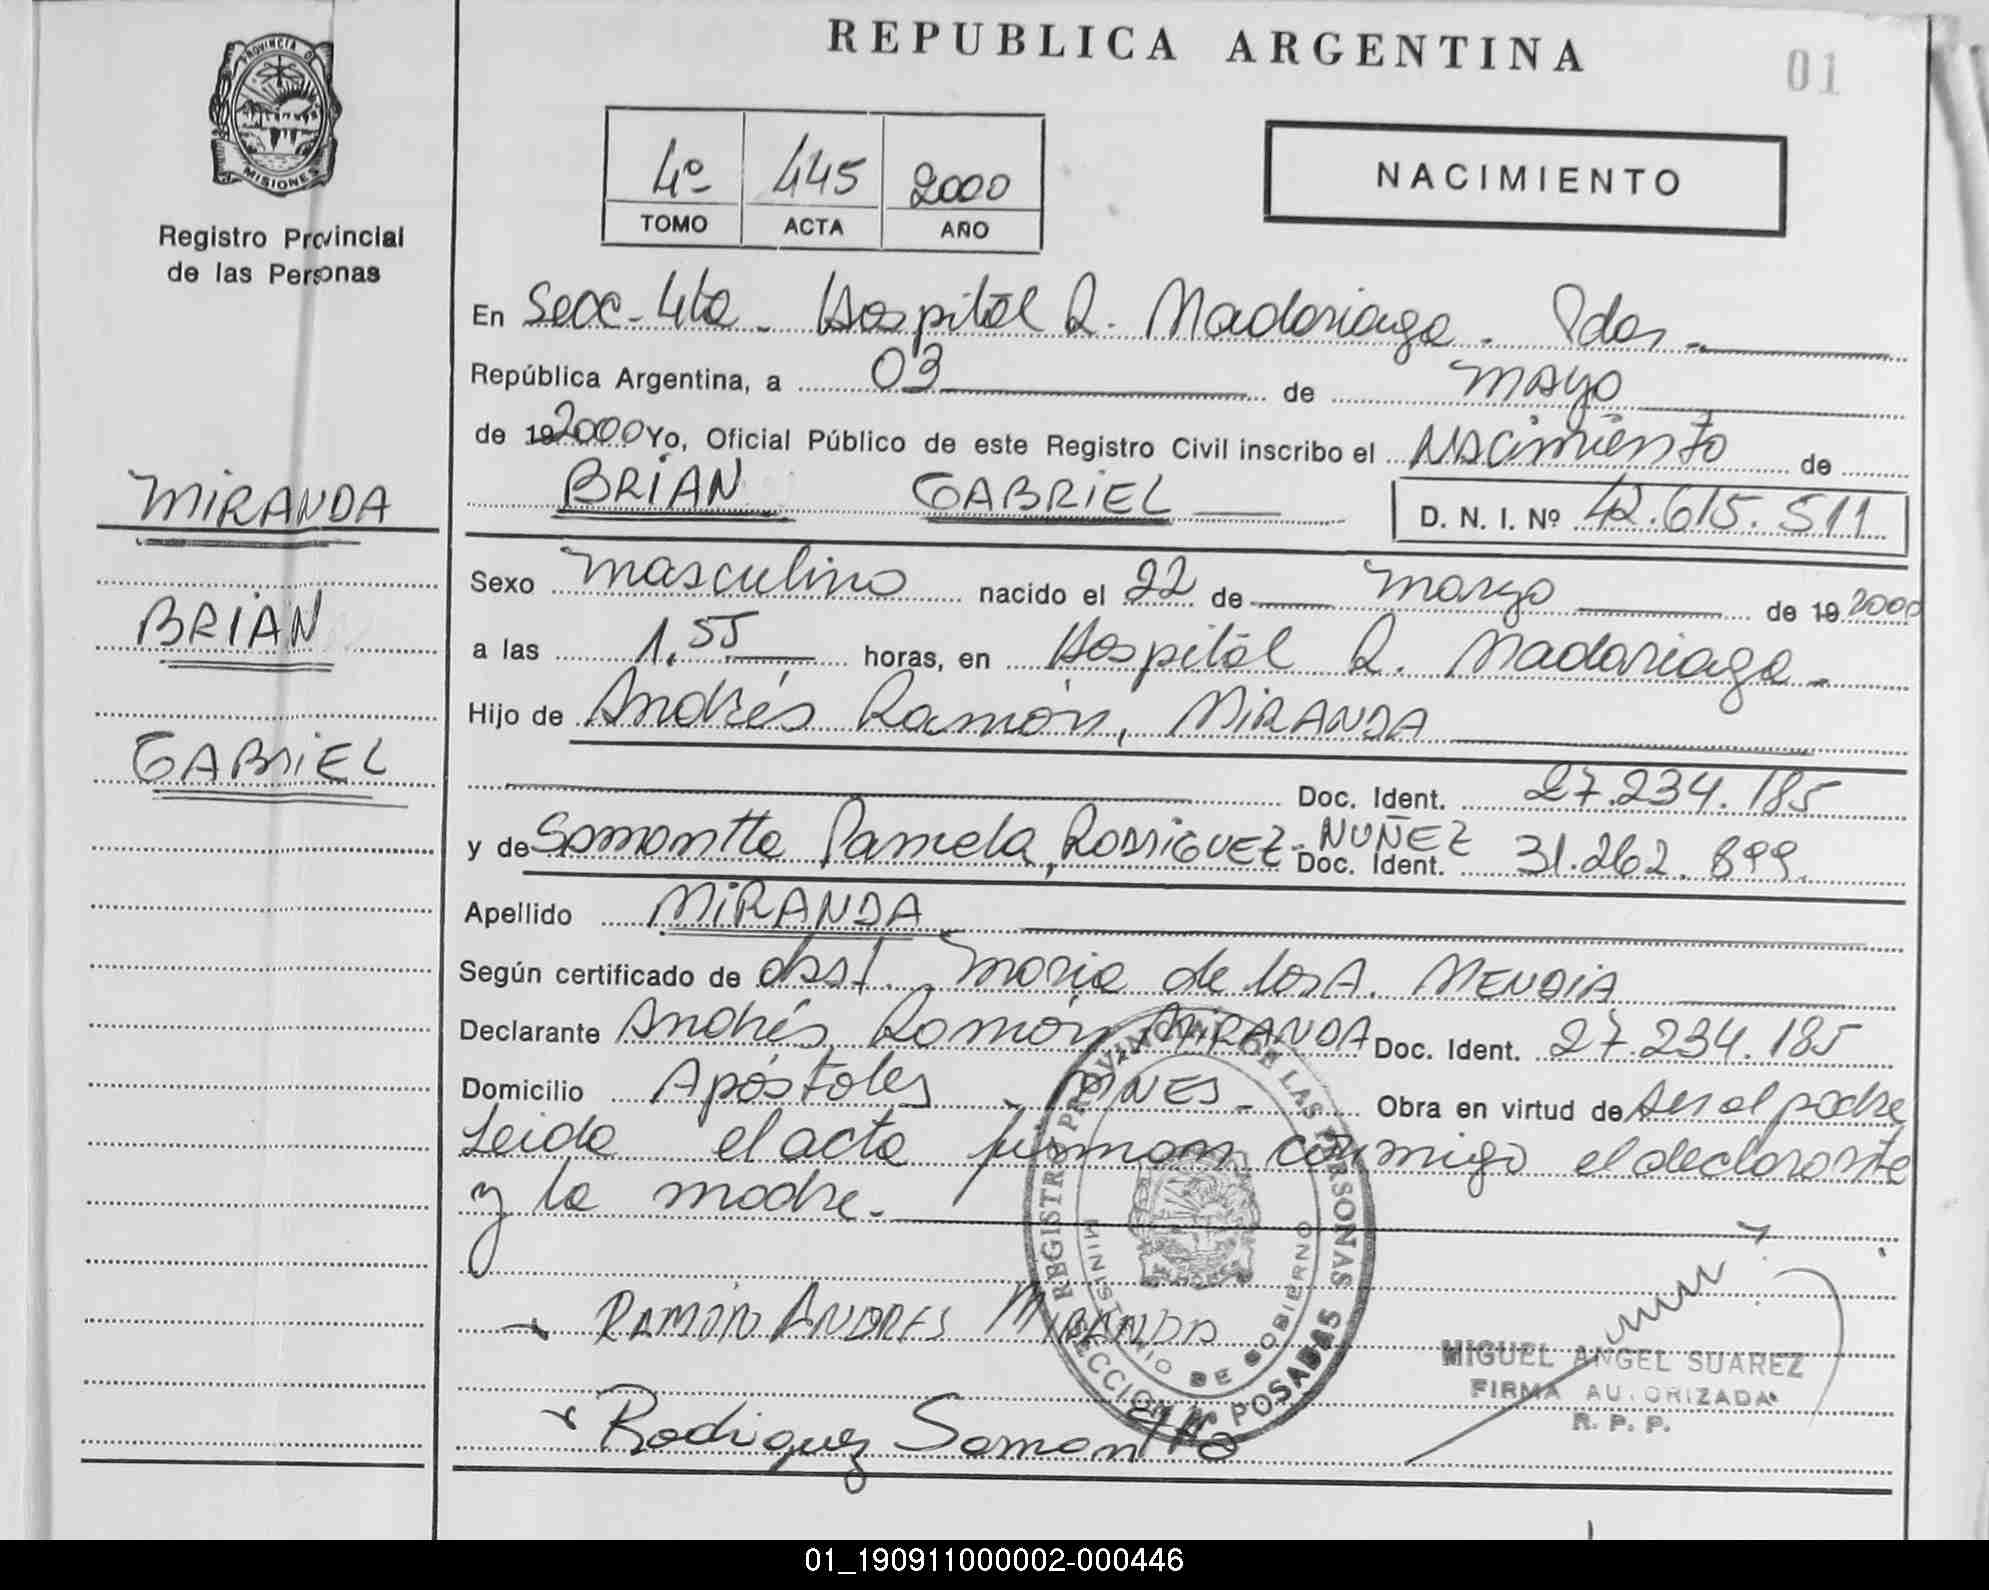 REPUBLICA ARGENTINA
01
PROVINCIA D
MISIONES
Registro Provincial
de las Personas
4º 445 2000
TOMO ACTA AÑO
NACIMIENTO
En Secc. 4ta. Hospital R. Madariaga. Pdas.
República Argentina, a 03 de MAYO
de 192000 Yo, Oficial Público de este Registro Civil inscribo el NAcimiento de
BRIAN GABRIEL D. N. I. Nº 42.615.511
MIRANDA
BRIAN
GABRIEL
Sexo masculino nacido el 22 de marzo de 19 2000
a las 1.55 horas, en Hospital R. Madariaga
Hijo de Andrés Ramón, MIRANDA
Doc. Ident. 27.234.185
y de Samantta Pamela, RODRIGUEZ - NUÑEZ Doc. Ident. 31.262.899.
Apellido MIRANDA
Según certificado de obst. Maria de los A. MENDIA
Declarante Andrés Ramón MIRANDA Doc. Ident. 27.234.185
Domicilio Apóstoles - MNES - Obra en virtud de ser el padre
Leida el acta firman conmigo el declarante
y la madre.
RAMÓN ANDRES MIRANDA
Rodiguez Samantta
REGISTRO PROVINCIAL DE LAS PERSONAS
MINISTERIO DE GOBIERNO
SECCION POSADAS
MIGUEL ANGEL SUAREZ
FIRMA AUTORIZADA
R. P. P.
01_190911000002-000446